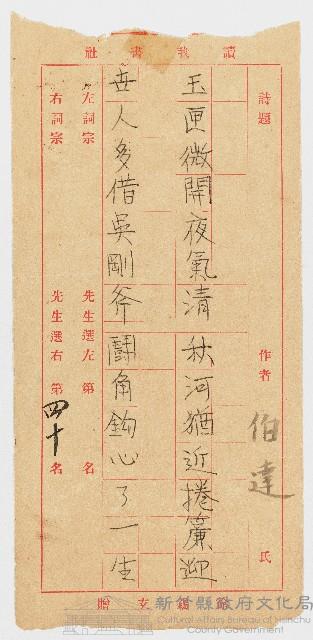 讀我書社
詩題
作者 伯達 氏
玉匣微開夜氣清 秋河猶近捲簾迎
世人多借吳剛斧 鬪角鈎心了一生
左詞宗 先生選左第 名
右詞宗 先生選右第四十名
玄贈
新竹縣政府文化局
Cultural Affairs Bureau of Hsinchu
County Government